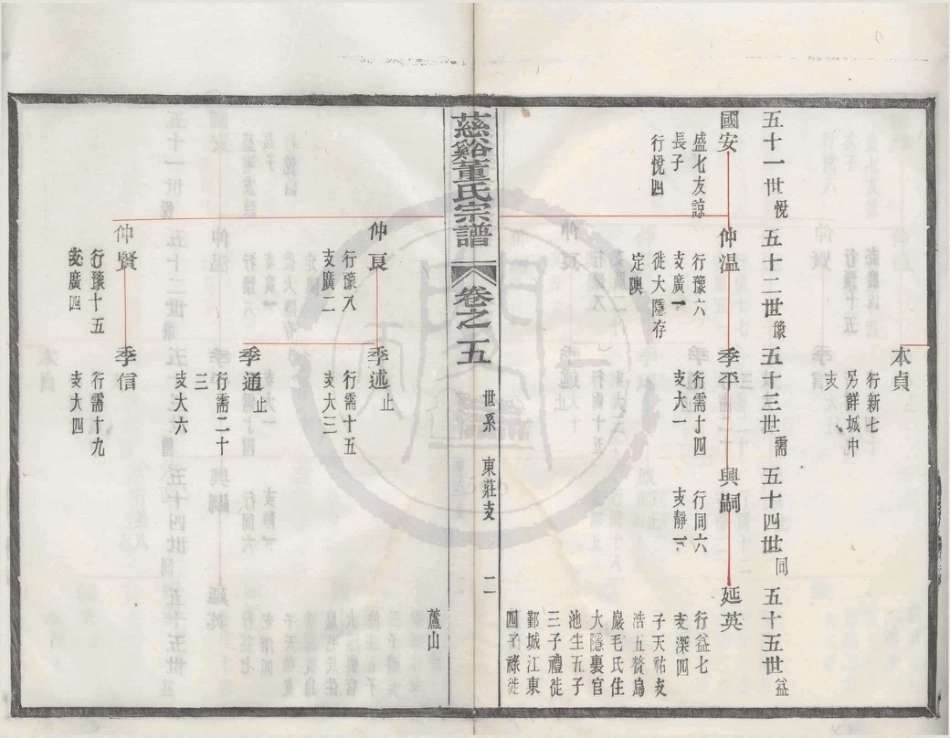 本貞
行新七
另詳城中
支
五十一世悅
五十二世豫
五十三世需
五十四世同
五十五世益
國安
盛七友諒
長子
行悅四
仲温
行豫六
支廣一
徙大隱存
定隩
季平
行需十四
支大一
興嗣
行同六
支靜一
延英
行益七
支深四
子天祐支
浩五贅鳥
巖毛氏住
大隱裏官
池生五子
三子禮徙
鄞城江東
四子祿徙
慈谿董氏宗譜
卷之五
世系
東莊支
二
蘆山
仲良
行豫八
支廣二
季述止
行需十五
支大三
季通止
行需二十
三
支大六
仲賢
行豫十五
支廣四
季信
行需十九
支大四